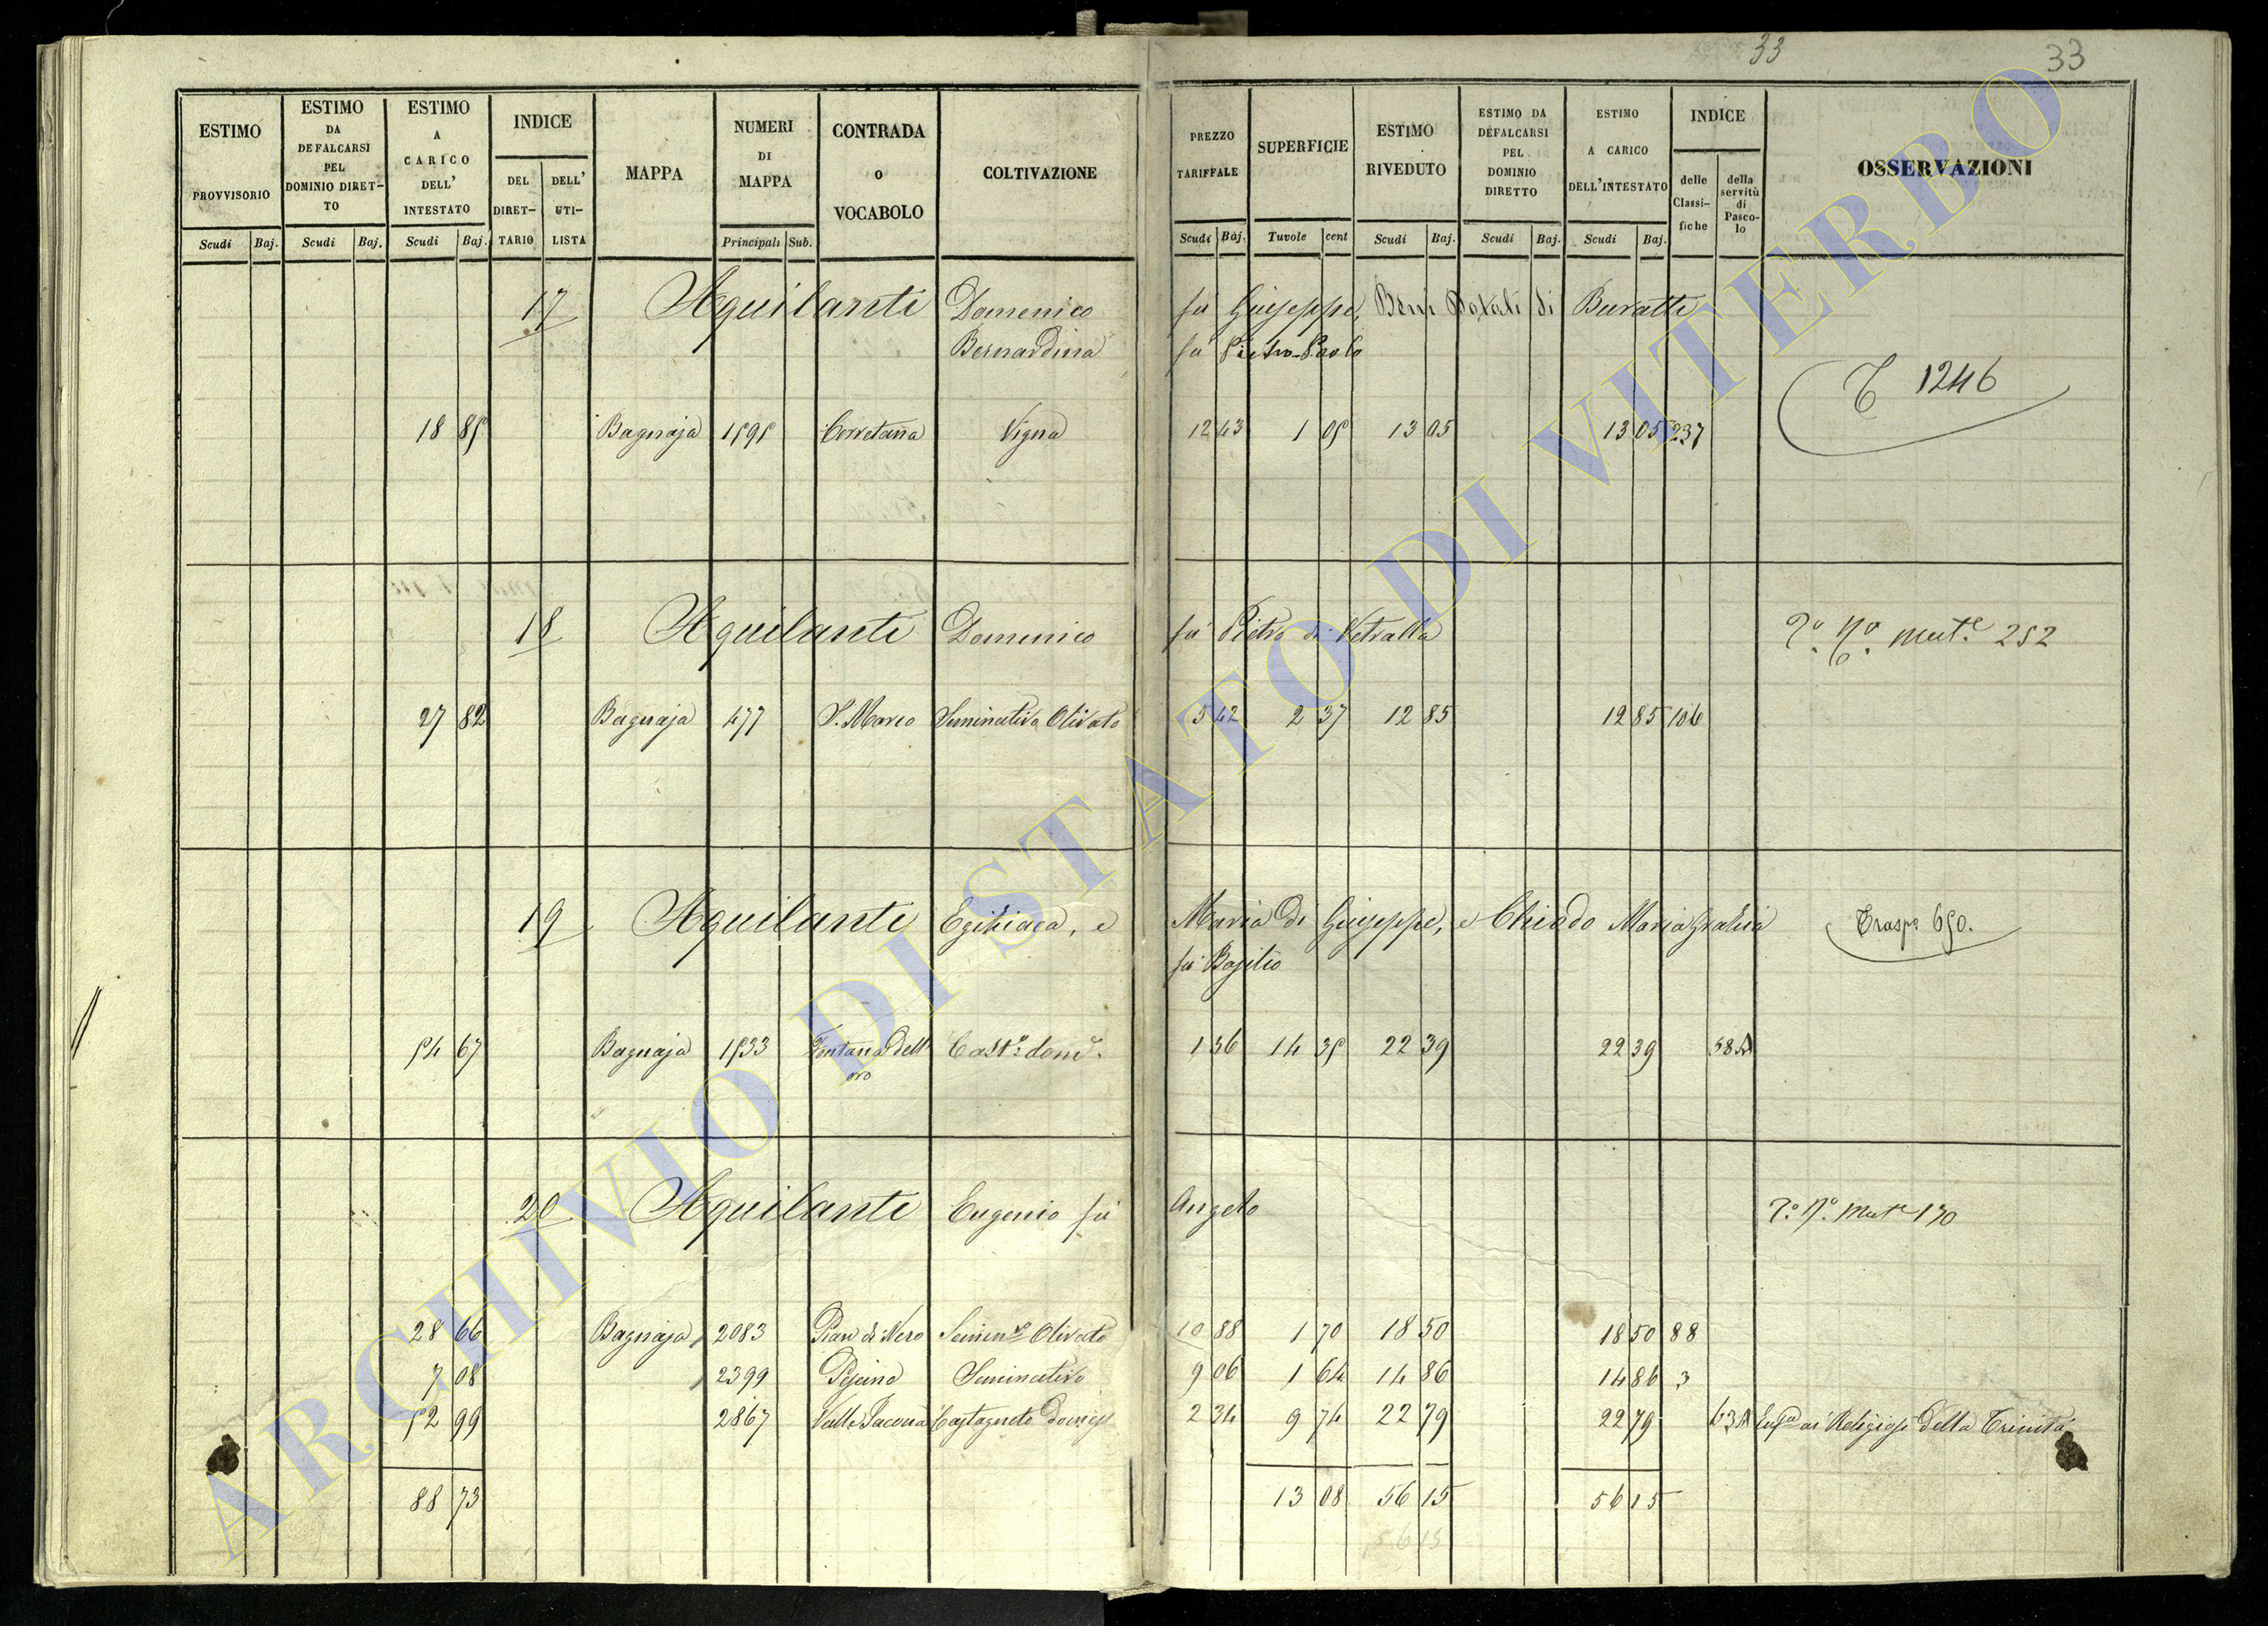 33 33
ESTIMO PROVVISORIO
ESTIMO DA DEFALCARSI PEL DOMINIO DIRET-TO
ESTIMO A CARICO DELL' INTESTATO
INDICE
DEL DIRET-TARIO
DELL' UTI-LISTA
MAPPA
NUMERI DI MAPPA
CONTRADA O VOCABOLO
COLTIVAZIONE
PREZZO TARIFFALE
SUPERFICIE
ESTIMO RIVEDUTO
ESTIMO DA DEFALCARSI PEL DOMINIO DIRETTO
ESTIMO A CARICO DELL'INTESTATO
INDICE
delle Classi-fiche
della servitù di Pasco-lo
OSSERVAZIONI
Scudi Baj. Scudi Baj. Scudi Baj. Principali Sub. Scudi Baj. Tavole cent Scudi Baj. Scudi Baj. Scudi Baj.
17 Aquilanti Domenico fu Giuseppe, Beni Dotali di Buratti
Bernardina fu Pietro-Paolo
T 1246
18 85 Bagnaja 1595 Vigna 12 43 1 05 13 05 13 05 237
18 Aquilanti Domenico fu Pietro di Vetralla 252
27 82 Bagnaja 477 S. Marco Seminativo Olivato 5 42 2 37 12 85 12 85 106
19 Aquilanti Egiziaca, e Maria di Giuseppe, e Maria Grazia Trasp. 650.
fu Basilio
54 67 Bagnaja 1533 Fontana dell' oro Cast.o dom. 1 56 14 35 22 39 22 39 58 A
20 Aquilanti Eugenio fu Angelo
28 66 Bagnaja 2083 Pian di Nero Semin.o Olivato 10 88 1 70 18 50 18 50 88
7 08 2399 Seminativo 9 06 1 64 14 86 14 86 3
52 99 2867 Castagneto 2 34 9 74 22 79 22 79 63 A ai Religiosi della Trinità
88 73 13 08 56 15 56 15
56 15
ARCHIVIO DI STATO DI VITERBO